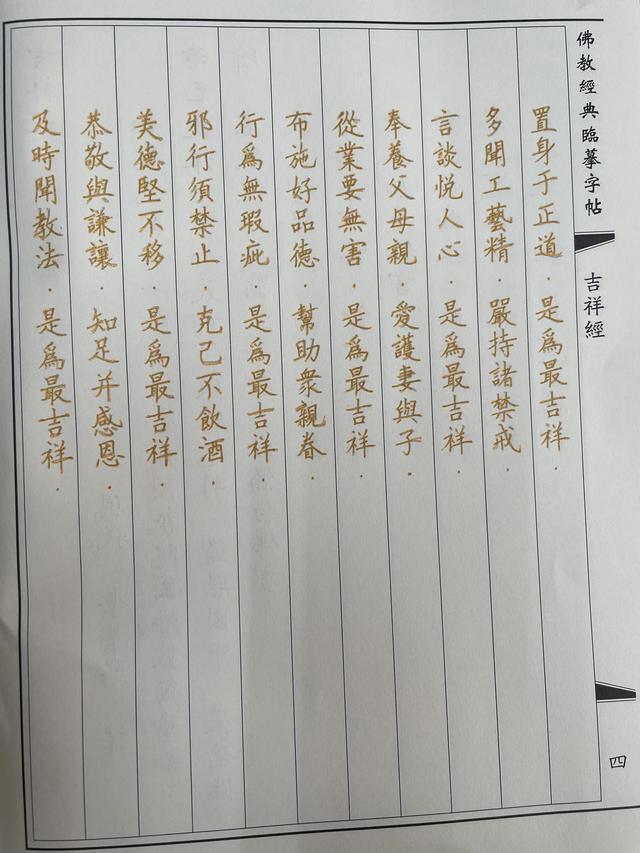 佛教經典臨摹字帖
吉祥經
四
置身于正道．是爲最吉祥．
多聞工藝精．嚴持諸禁戒．
言談悅人心．是爲最吉祥．
奉養父母親．愛護妻與子．
從業要無害．是爲最吉祥．
布施好品德．幫助衆親眷．
行爲無瑕疵．是爲最吉祥．
邪行須禁止．克己不飲酒．
美德堅不移．是爲最吉祥．
恭敬與謙讓．知足并感恩．
及時聞教法．是爲最吉祥．